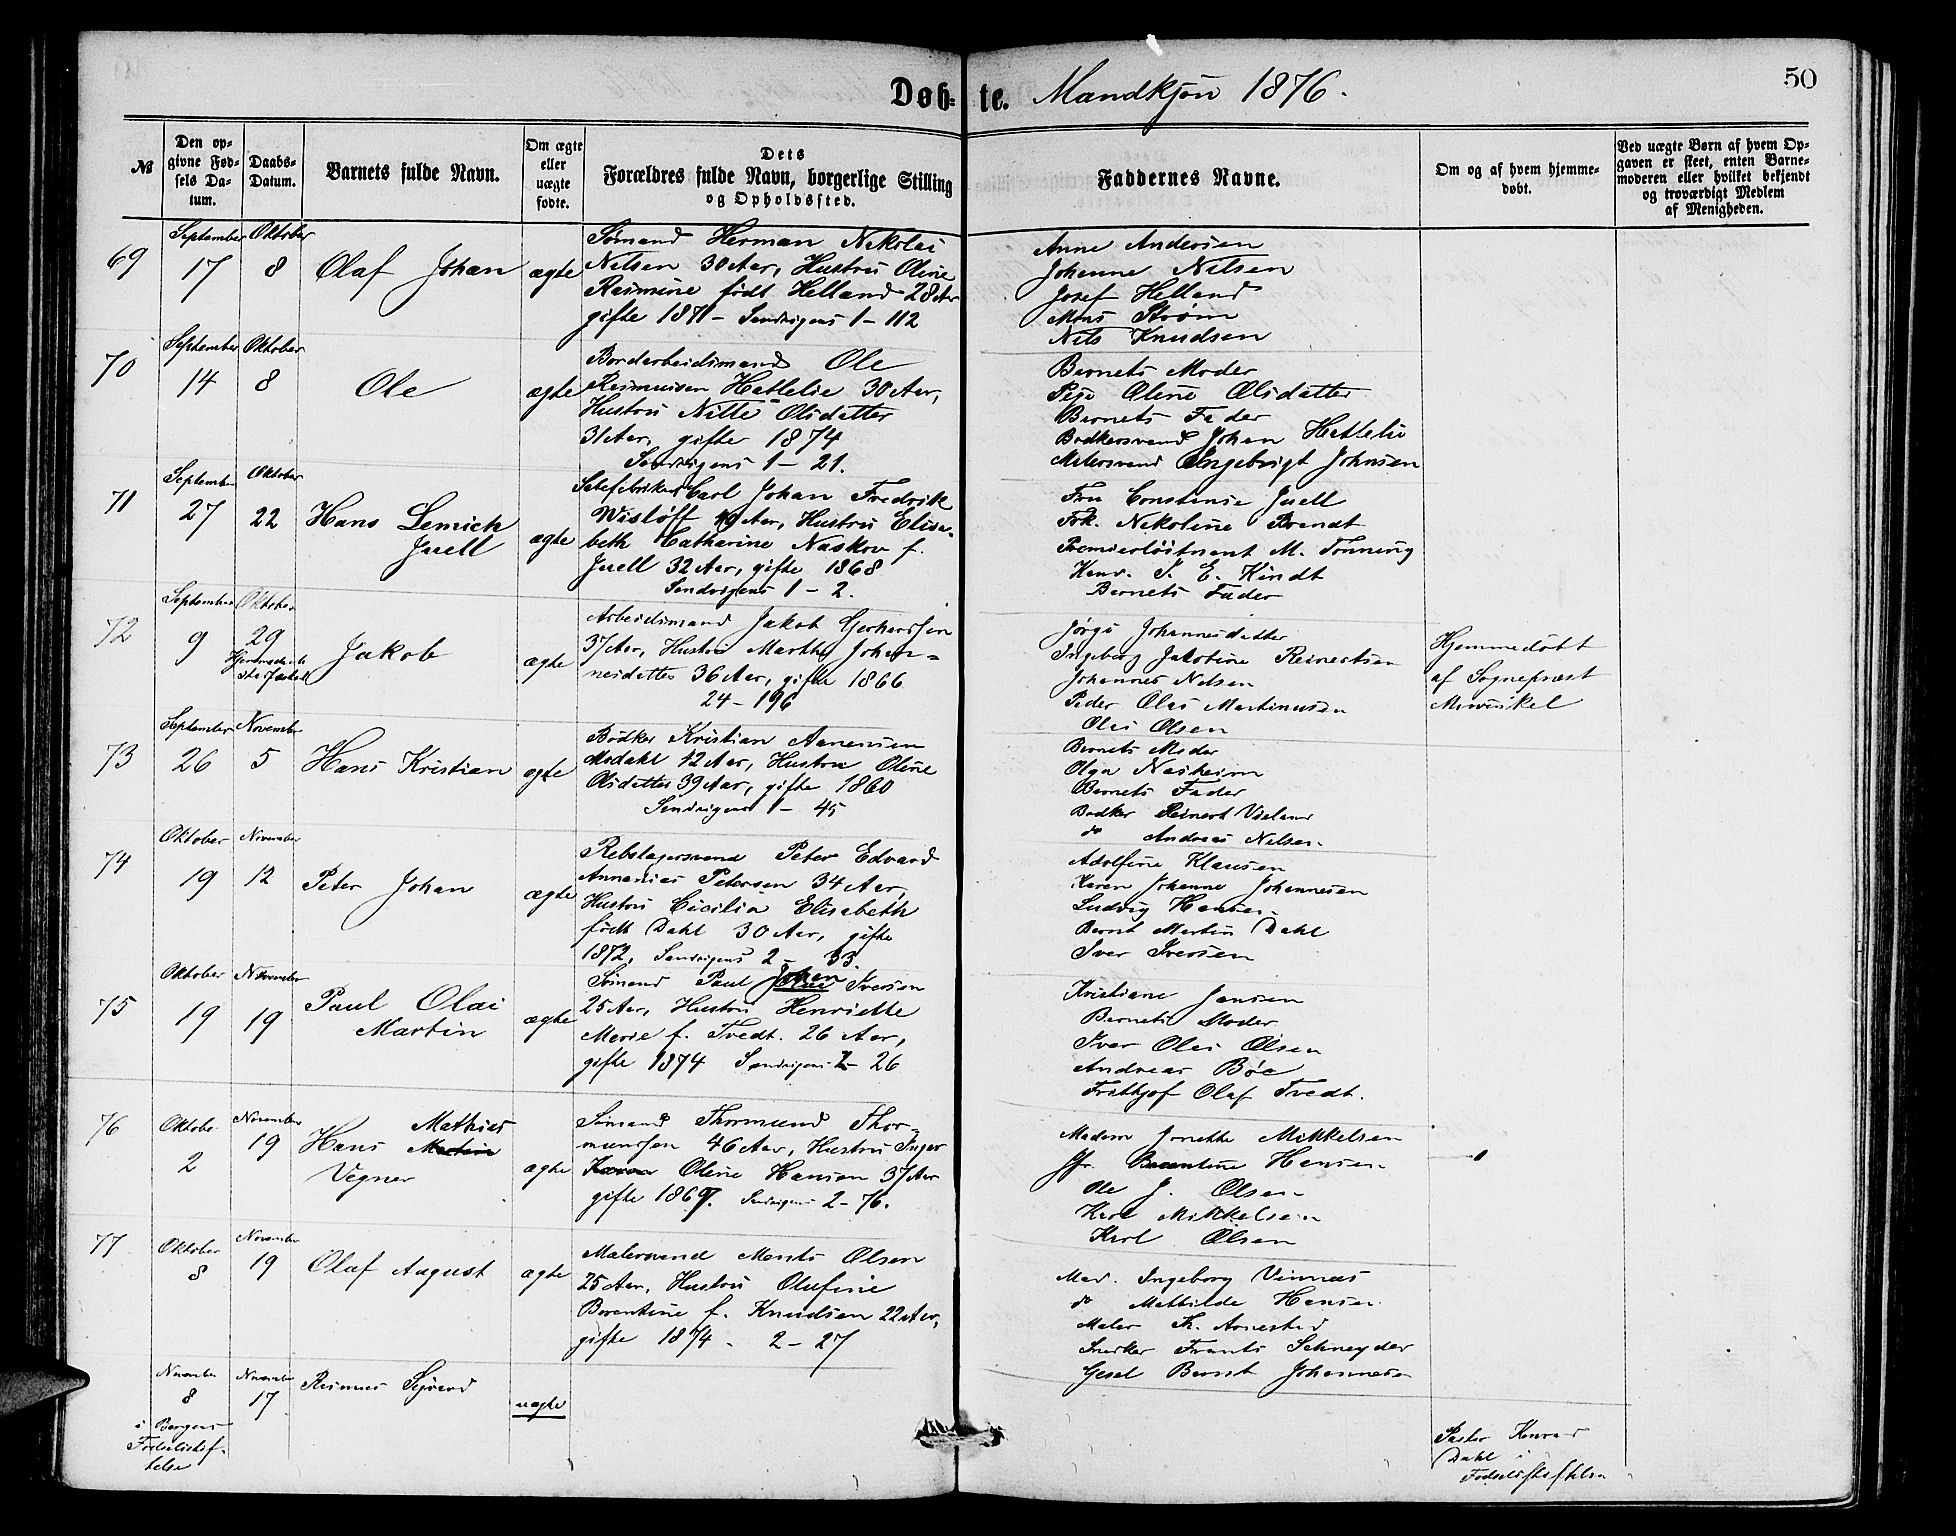 Døbte. Mandkjøn 1876.
50
№
Den opgivne Fødsels Datum.
Daabs-Datum.
Barnets fulde Navn.
Om ægte eller uægte fødte.
Dets Forældres fulde Navn, borgerlige Stilling og Opholdssted.
Faddernes Navne.
Om og af hvem hjemmedøbt.
Ved uægte Børn af hvem Opgaven er skeet, enten Barnemoderen eller hvilket bekjendt og troværdigt Medlem af Menigheden.
69
September 17
Oktober 8
Olaf Johan
ægte
Sømand Herman Nikolai
Nilsen 30 Aar, Hustru Oline
Rasmine født Helland 28 Aar
gifte 1871 - Sandvigens 1 - 112
Anne Andersen
Johanne Nilsen
Josef Helland
Mons Strøm
Nils Knudsen
70
September 14
Oktober 8
Ole
ægte
Bordarbeidsmand Ole
Rasmussen Hatlelie 30 Aar,
Hustru Nille Olsdatter
31 Aar, gifte 1874
Sandvigens 1 - 21.
Barnets Moder
Pige Oline Olsdatter
Barnets Fader
Bødkersvend Johan Hatlelie
Malersvend Ingebrigt Johnsen
71
September 27
Oktober 22
Hans Lemich
Juell
ægte
Carl Johan Fredrik
Wisløff 40 Aar, Hustru Elisa-
beth Catharine Naskov f.
Juell 32 Aar, gifte 1868
Sandvigens 1 - 2.
Fru Constanse Juell
Frk. Nikoline Brandt
Premierløitnant M. Tønning
S. E. Kindt
Barnets Fader
72
September 9
Oktober 29
Jakob
ægte
Arbeidsmand Jakob Gerhardsen
37 Aar, Hustru Marthe Johan-
nesdatter 36 Aar, gifte 1866
24 - 196
Johannesdatter
Ingeborg Jakobine Reinertsen
Johannes Nilsen
Peder Olai Martinusen
Olai Olsen
Hjemmedøbt
af Sognepræst
Mowinkel
73
September 26
November 5
Hans Kristian
ægte
Bødker Kristian Aanensen
Aasdahl 42 Aar, Hustru Oline
Olsdatter 39 Aar, gifte 1860
Sandvigens 1 - 45
Barnets Moder
Olga Nasheim
Barnets Fader
Bødker Reinert Vieland
do Andreas Nilsen.
74
Oktober 19
November 12
Peter Johan
ægte
Rebslagersvend Peter Edvard
Annanias Petersen 34 Aar,
Hustru Cicilia Elisabeth
født Dahl 30 Aar, gifte
1872, Sandvigens 2 - 33.
Adolfine Klausen
Karen Johanne Johannesen
Ludvig Hansen
Bernt Martin Dahl
Iver Iversen
75
Oktober 19
November 19
Paul Olai
Martin
ægte
Sømand Paul Johan Iversen
25 Aar, Hustru Henriette
Marie f. Tvedt. 26 Aar,
gifte 1874 Sandvigens 2 - 26
Kristiane Jansen
Barnets Moder
Iver Olai Olsen
Andreas Bøe
Frithjof Olaf Tvedt.
76
Oktober 2
November 19
Hans Mathias
Vegner
ægte
Sømand Thormund Thor-
mundsen 46 Aar, Hustru Inger
Oline Hansen 37 Aar
gifte 1869. Sandvigens 2 - 76.
Madam Jonette Mikkelsen
Jfr. Berentine Hansen
Ole J. Olsen
Karl Mikkelsen
Karl Olsen
77
Oktober 8
November 19
Olaf August
ægte
Malersvend Ments Olsen
25 Aar, Hustru Olufine
Berentine f. Knudsen 22 Aar,
gifte 1874 - 2 - 27
Mad. Ingeborg Vinnæs
do Mathilde Hansen
Maler Arnestad
Snedker Frants Schneyder
Bernt Johannesen
November 8
i Bergens
Fødselsstif-
telse
November 17
Rasmus Sejverd
uægte
Pastor Konrad
Dahl i
Fødselsstiftelsen